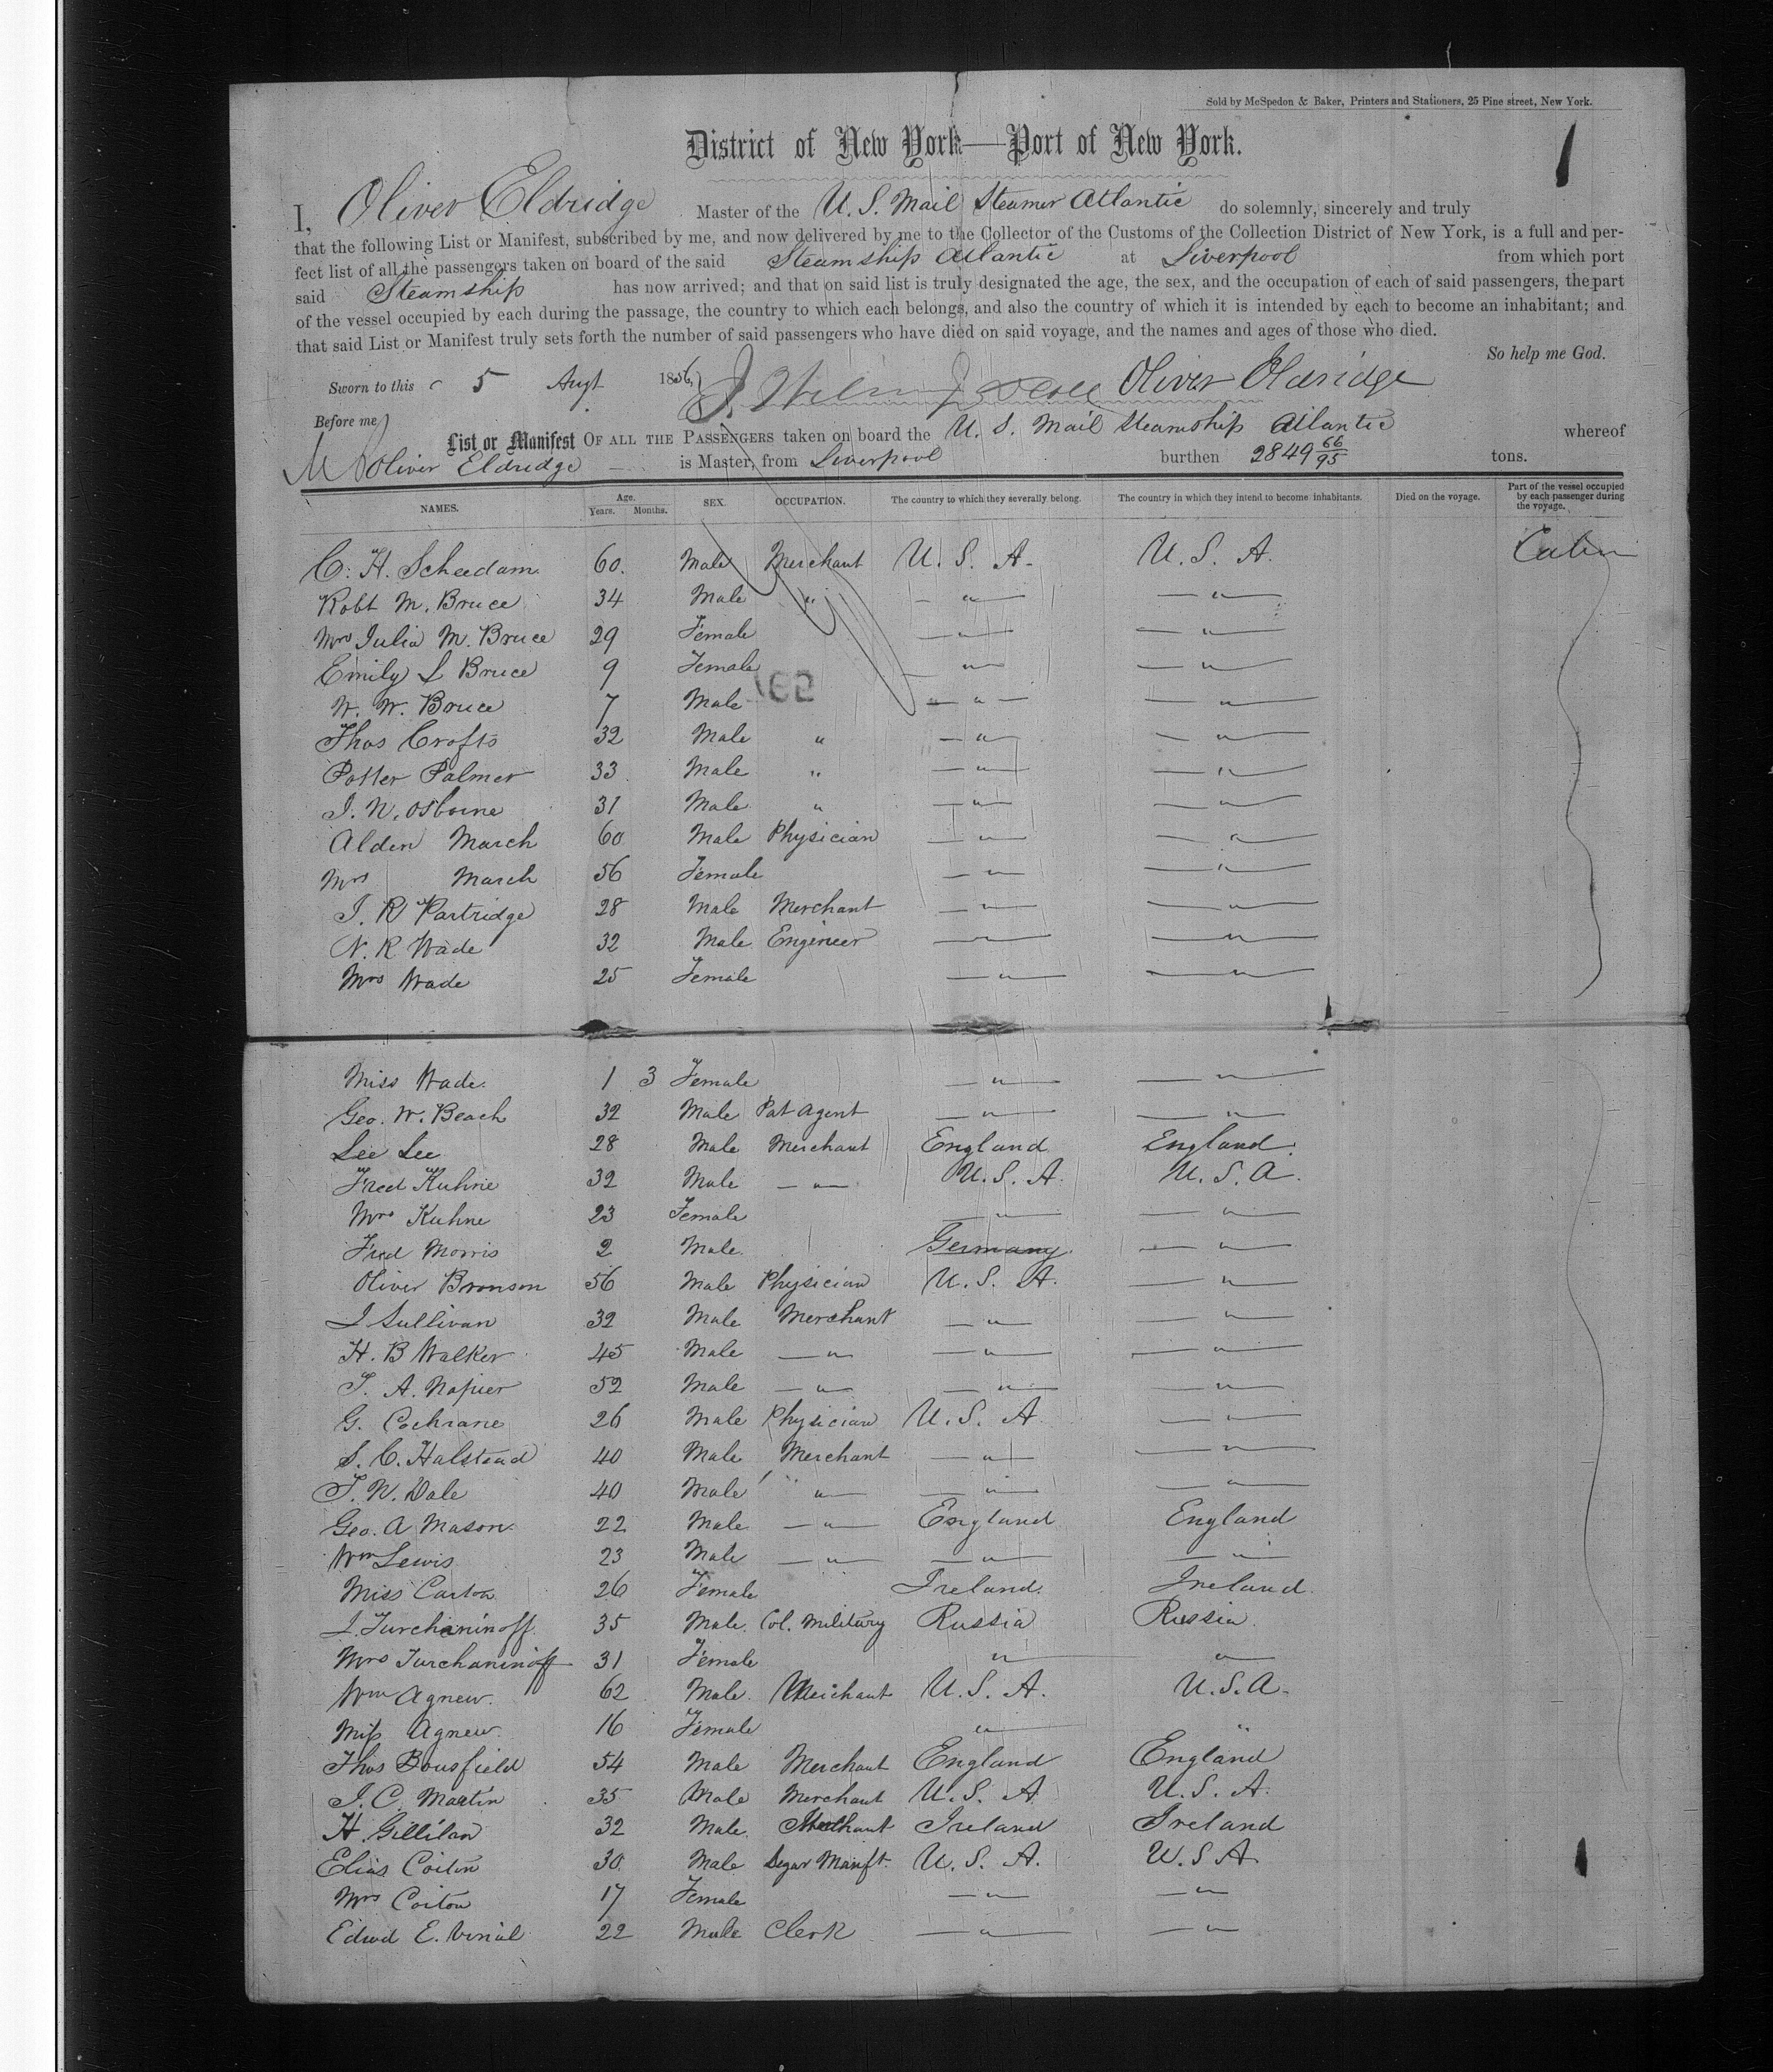 Sold by McSpedon & Baker, Printers and Stationers, 25 Pine street, New York.
District of New York—Port of New York.
1
I, Oliver Eldridge Master of the U. S. Mail Steamer Atlantic do solemnly, sincerely and truly
that the following List or Manifest, subscribed by me, and now delivered by me to the Collector of the Customs of the Collection District of New York, is a full and per-
fect list of all the passengers taken on board of the said Steamship Atlantic at Liverpool from which port
said Steamship has now arrived; and that on said list is truly designated the age, the sex, and the occupation of each of said passengers, the part
of the vessel occupied by each during the passage, the country to which each belongs, and also the country of which it is intended by each to become an inhabitant; and
that said List or Manifest truly sets forth the number of said passengers who have died on said voyage, and the names and ages of those who died.
So help me God.
Sworn to this 5 Augt 1856, Oliver Eldridge
Before me
List or Manifest OF ALL THE PASSENGERS taken on board the U. S. Mail Steamship Atlantic whereof
Oliver Eldridge is Master, from Liverpool burthen 2849 66/95 tons.
NAMES. Age. Years. Months. SEX. OCCUPATION. The country to which they severally belong. The country in which they intend to become inhabitants. Died on the voyage. Part of the vessel occupied by each passenger during the voyage.
C. H. Scheedam 60. Male Merchant U. S. A. U. S. A. Cabin
Robt M. Bruce 34 Male " — " — — " —
Mrs Julia M. Bruce 29 Female — " — — " —
Emily L Bruce 9 Female — " — — " —
W. W. Bruce 7 Male — " — — " —
Thos Crofts 32 Male " — " — — " —
Potter Palmer 33 Male " — " — — " —
J. N. Osborne 31 Male " — " — — " —
Alden March 60 Male Physician — " — — " —
Mrs March 56 Female — " — — " —
J. R Partridge 28 Male Merchant — " — — " —
N. R Wade 32 Male Engineer — " — — " —
Mrs Wade 25 Female — " — — " —
Miss Wade 1 3 Female — " — — " —
Geo. W. Beach 32 Male Pat Agent — " — — " —
Lee Lee 28 Male Merchant England England
Fred Kuhne 32 Male — " — U. S. A. U. S. A.
Mrs Kuhne 23 Female — " — — " —
Fred Morris 2 Male Germany — " —
Oliver Bronson 56 Male Physician U. S. A. — " —
J Sullivan 32 Male Merchant — " — — " —
H. B Walker 45 Male — " — — " — — " —
T. A. Napier 52 Male — " — — " — — " —
G. Cochrane 26 Male Physician U. S. A. — " —
S. C. Halstead 40 Male Merchant — " — — " —
T. W. Dale 40 Male " — — " — — " —
Geo. A Mason 22 Male — " — England England
Wm Lewis 23 Male — " — — " — — " —
Miss Carton 26 Female Ireland Ireland
J. Turchaninoff 35 Male Col. Military Russia Russia
Mrs Turchaninoff 31 Female " — — " —
Wm Agnew 62 Male Merchant U. S. A. U. S. A.
Miss Agnew 16 Female " — "
Thos Bousfield 54 Male Merchant England England
J. C. Martin 35 Male Merchant U. S. A U. S. A.
H. Gillilan 32 Male Merchant Ireland Ireland
Elias Coiton 30 Male Segar Manft. U. S. A. U. S A.
Mrs Coiton 17 Female — " — — " —
Edwd E. Vinal 22 Male Clerk — " — — " —